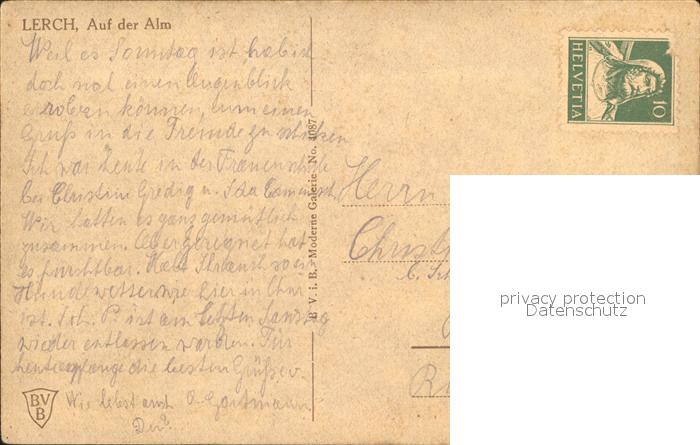 LERCH, Auf der Alm
Weil es Sonntag ist hab ich
doch mal einen Augenblick
erobern können, um einen
Gruß in die Fremde zu schicken
Ich war heute in der Frauenschule
bei Christine Gredig u. Ida
Wir hatten es ganz gemütlich
zusammen. Aber geregnet hat
es furchtbar. Habt Ihr auch so ein
Hundewetter wie hier in Chur
ist. Joh. P. ist am letzten Samstag
wieder entlassen worden. Für
heute empfange die besten Grüße v.
Wie lebst
B. V. i. B. Moderne Galerie No. 4087
HELVETIA
10
Herrn
Christ
BVB
privacy protection
Datenschutz